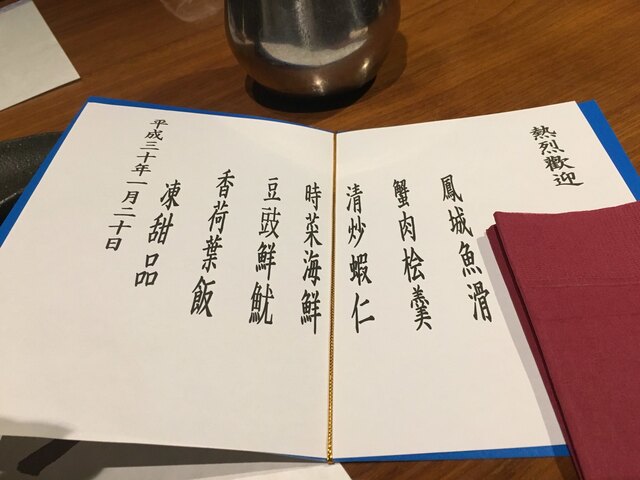 熱烈歡迎
鳳城魚滑
蟹肉桧羹
清炒蝦仁
時菜海鮮
豆豉鮮魷
香荷葉飯
凍甜品
平成三十年一月二十日